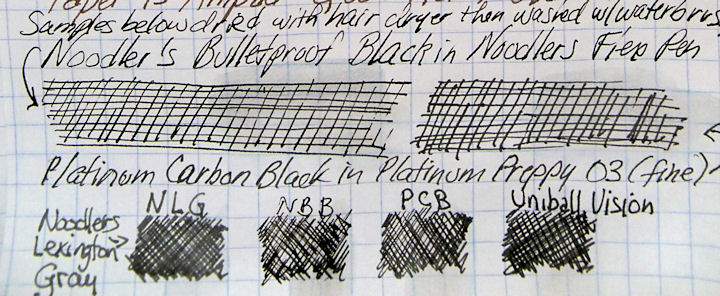 Paper is Ampad
Samples below dried with hair dryer then washed w/waterbrus
Noodler's Bulletproof Black in Noodlers Flex Pen
Platinum Carbon Black in Platinum Preppy 03 (fine)
NLG NBB PCB Uniball Vision
Noodlers
Lexington
Gray